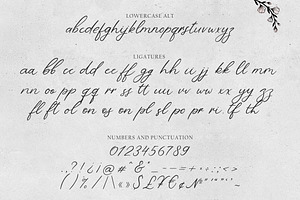 LOWERCASE ALT
abcdefghijklmnopqrstuvwxyz
LIGATURES
aa bb cc dd ee ff gg hh ii jj kk ll mm
nn oo pp qq rr ss tt uu vv ww xx yy zz
fl ft ol on os on pl sl po pr ri lf th
NUMBERS AND PUNCTUATION
0123456789